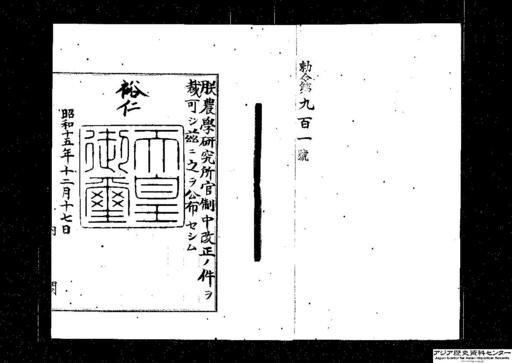 勅令第九百一號
朕農學研究所官制中改正ノ件ヲ
裁可シ茲ニ之ヲ公布セシム
裕仁
天皇
御璽
昭和十五年十二月十七日
内閣
アジア歴史資料センター
Japan Center for Asian Historical Records